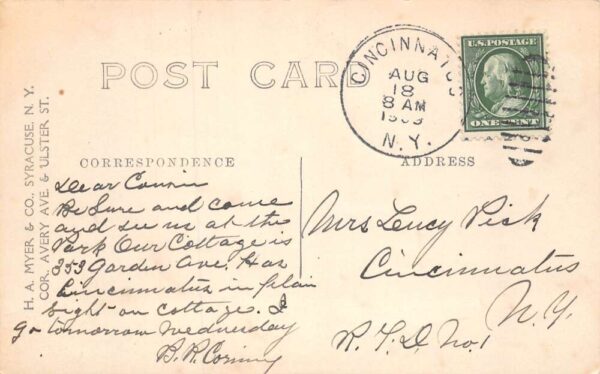 POST CARD
CINCINNATUS
AUG
18
8 AM
N.Y.
U.S. POSTAGE
ONE CENT
H. A. MYER & CO., SYRACUSE, N. Y.
COR. AVERY AVE. & ULSTER ST.
CORRESPONDENCE
Dear Cousin
Be Sure and come
and see us at the
Park Our Cottage is
353 Garden Ave. Has
Cincinnatus in plain
sight on cottage. I
go tomorrow Wednesday
B. R. Corning
ADDRESS
Mrs Lucy Peck
Cincinnatus
N.Y.
R.F.D. No. 1